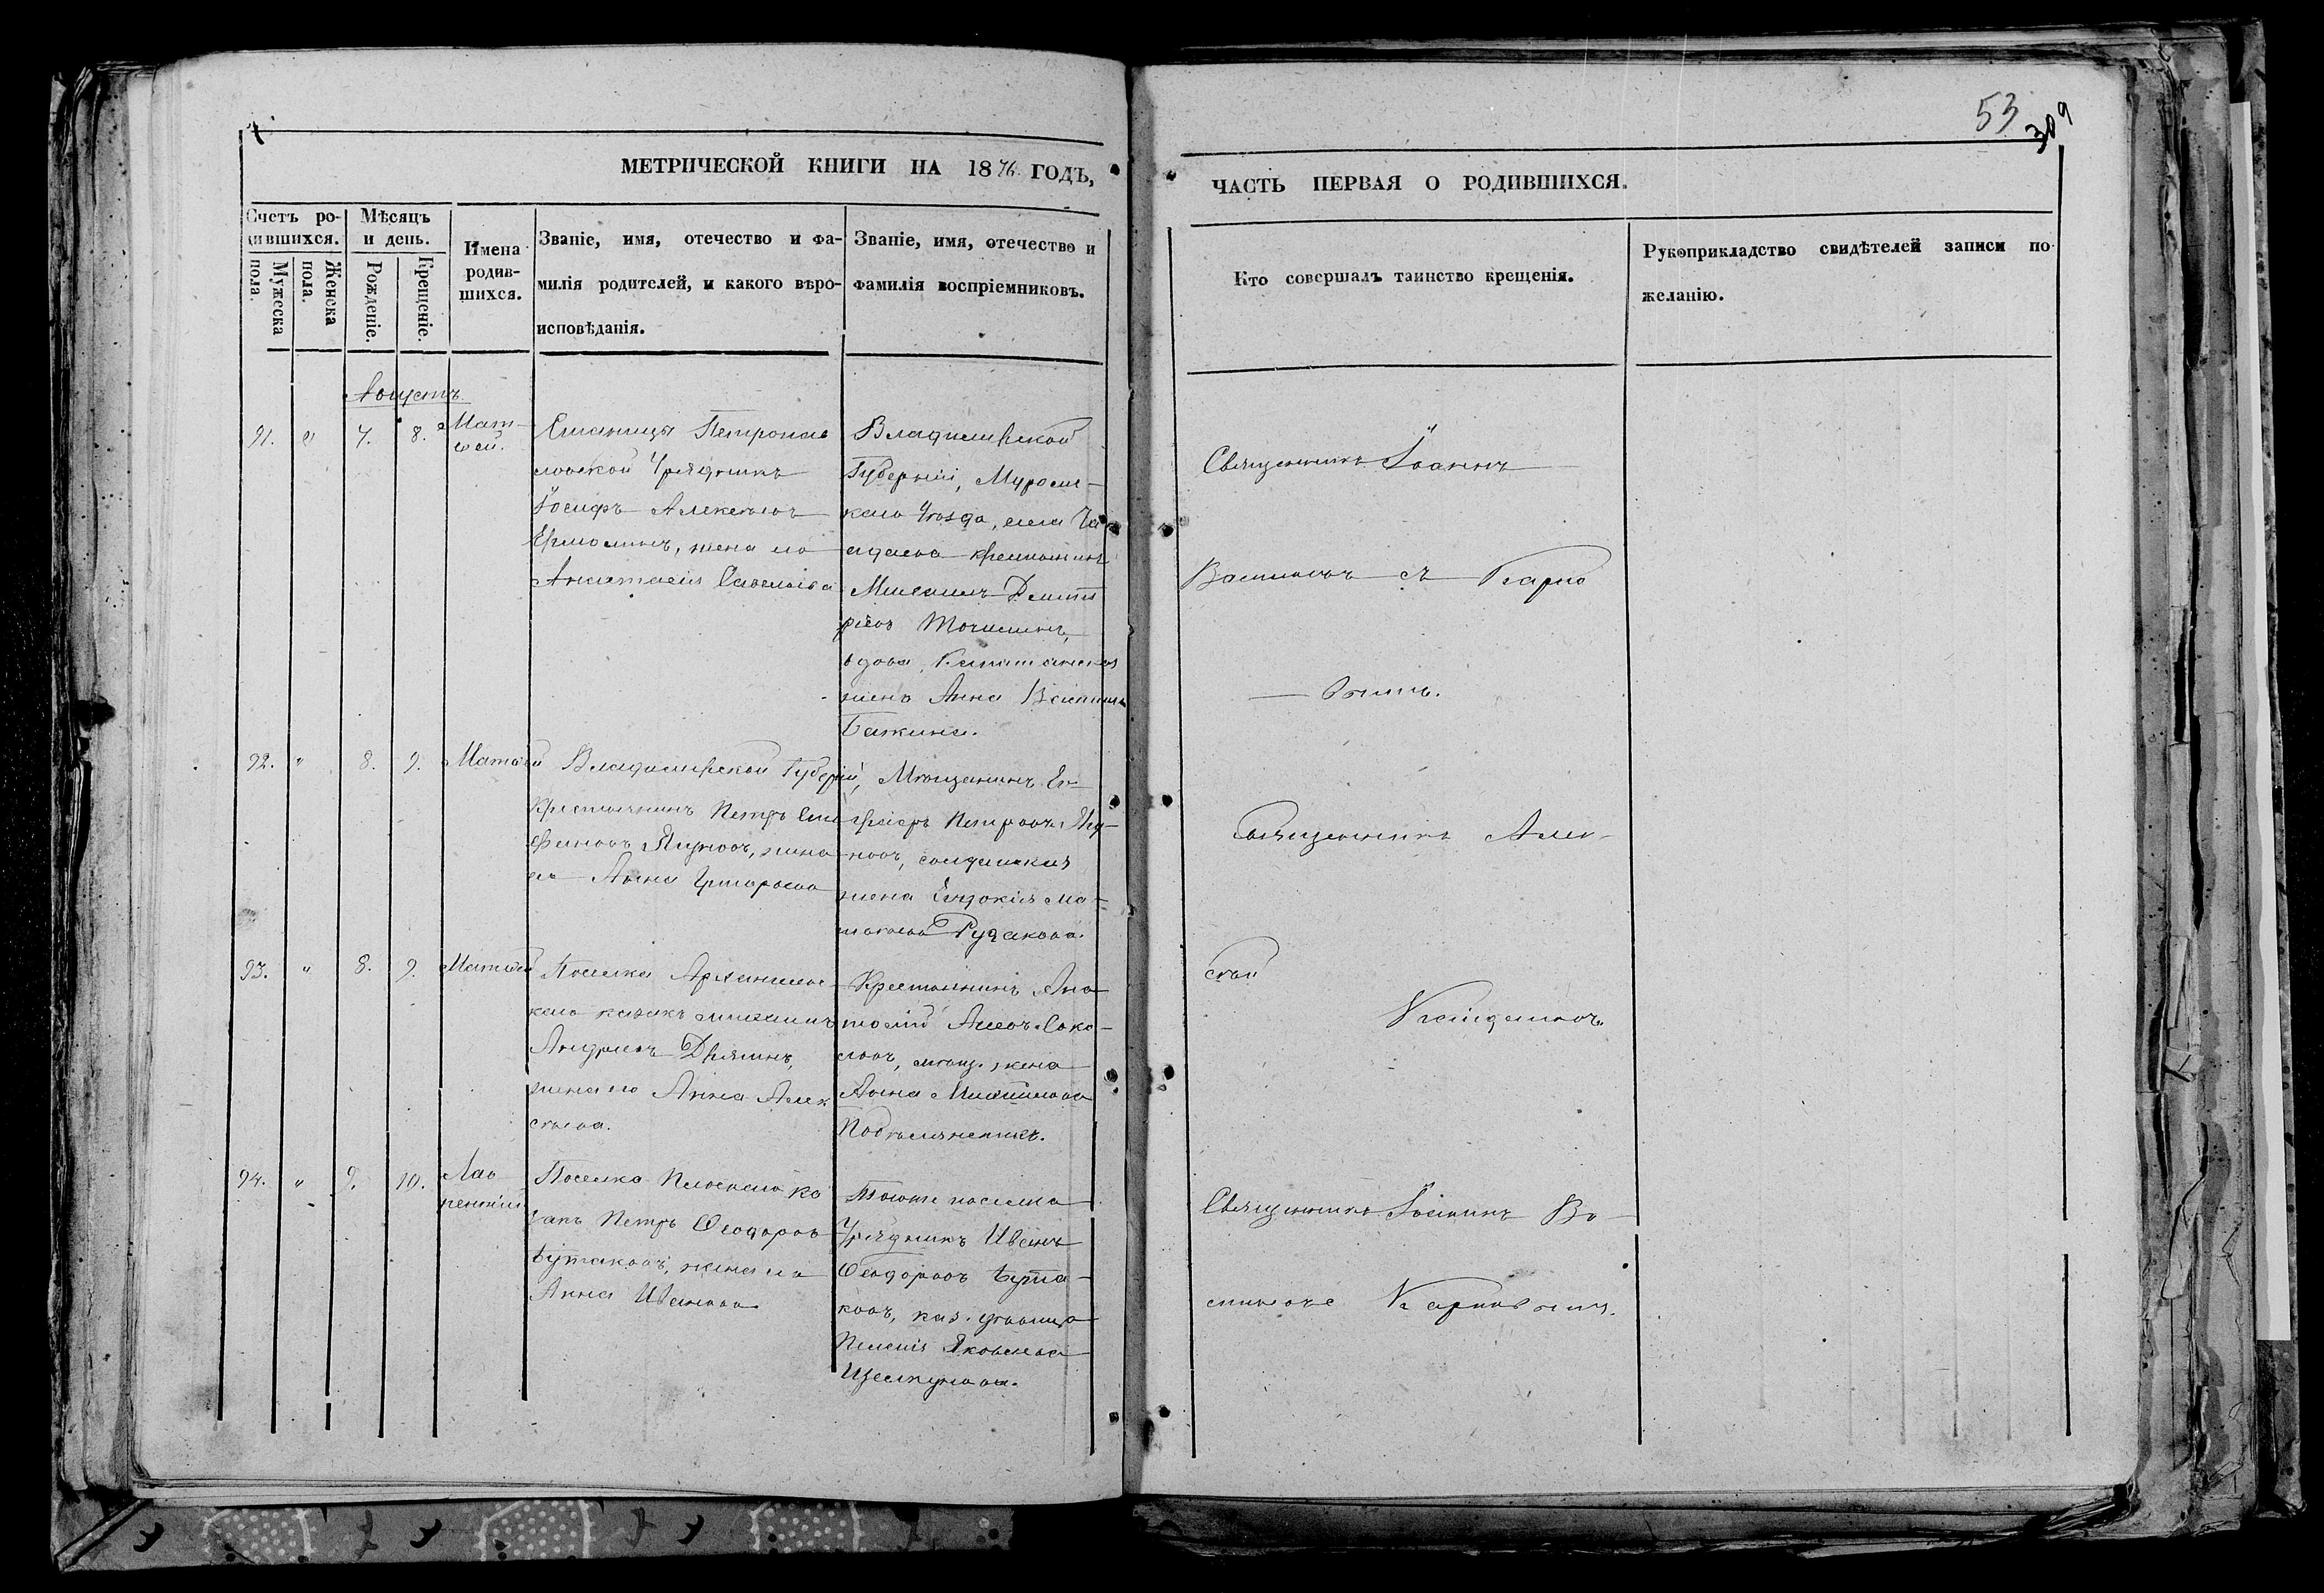 53
309
МЕТРИЧЕСКОЙ КНИГИ НА 1876 ГОДЪ,
ЧАСТЬ ПЕРВАЯ О РОДИВШИХСЯ.
Счетъ ро-
дившихся.
Мужеска
пола.
Женска
пола.
Мѣсяцъ
и день.
Рожденіе.
Крещеніе.
Имена
родив-
шихся.
Званіе, имя, отечество и фа-
милія родителей, и какого вѣро-
исповѣданія.
Званіе, имя, отечество и
фамилія воспріемниковъ.
Кто совершалъ таинство крещенія.
Рукоприкладство свидѣтелей записи по
желанію.
Августъ
91. " 7. 8. Мат-
ѳей.
Станицы Петропав
ловской Урядникъ
Іосифъ Алексѣевъ
Ермолинъ, жена его
Анастасія Савельева
Владимірской
Губерніи, Муромс-
каго Уѣзда, села
крестьянинъ
Михаилъ Дмит
ріевъ
вдова, Капитанская
жена Анна
Бажина.
Священникъ Іоаннъ
съ Карпо
92. " 8. 9. Матѳей
Владимірской Губерніи,
Крестьянинъ Петръ
Ягуновъ, жена
его Анна Григорьева
Мѣщанинъ
Петровъ Ягу-
новъ, солдатская
жена Евдокія Ма-
твѣева Рудакова.
Священникъ Алек-
сѣй
93. " 8. 9. Матѳей
Поселка Архангельс-
каго казакъ Михаилъ
Андреевъ
жена его Анна Алек
сѣева.
Крестьянинъ Ана
толій Соко-
ловъ, мѣщ. жена
Анна
94. " 9. 10. Лав
рентій
Поселка ка
закъ Петръ Ѳеодоров
Бутаковъ, жена его
Анна Иванова
Тогоже поселка
Урядникъ Иванъ
Ѳеодоровъ Бута-
ковъ, каз. дѣвица
Пелагія Яковлева
Щелкунова.
Священникъ Іоаннъ Ва-